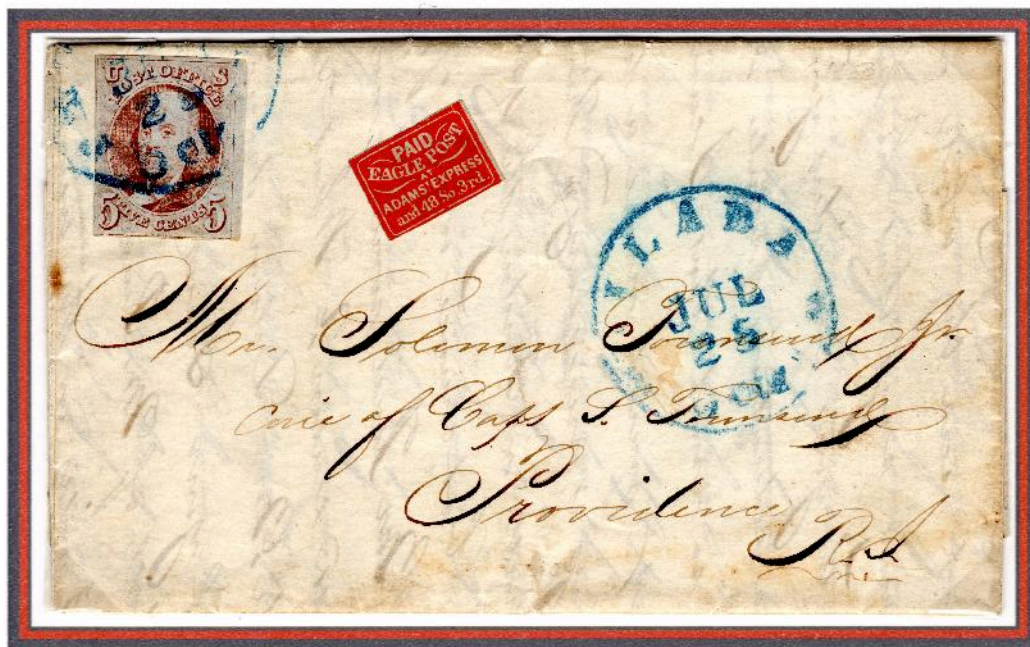 U S
POST OFFICE
5 FIVE CENTS 5
PAID
EAGLE POST
AT
ADAMS' EXPRESS
and 48 So. 3rd.
ILADA
JUL
25
Mr. Solomon Townsend Jr.
care of Capt S. Townsend
Providence
R.I